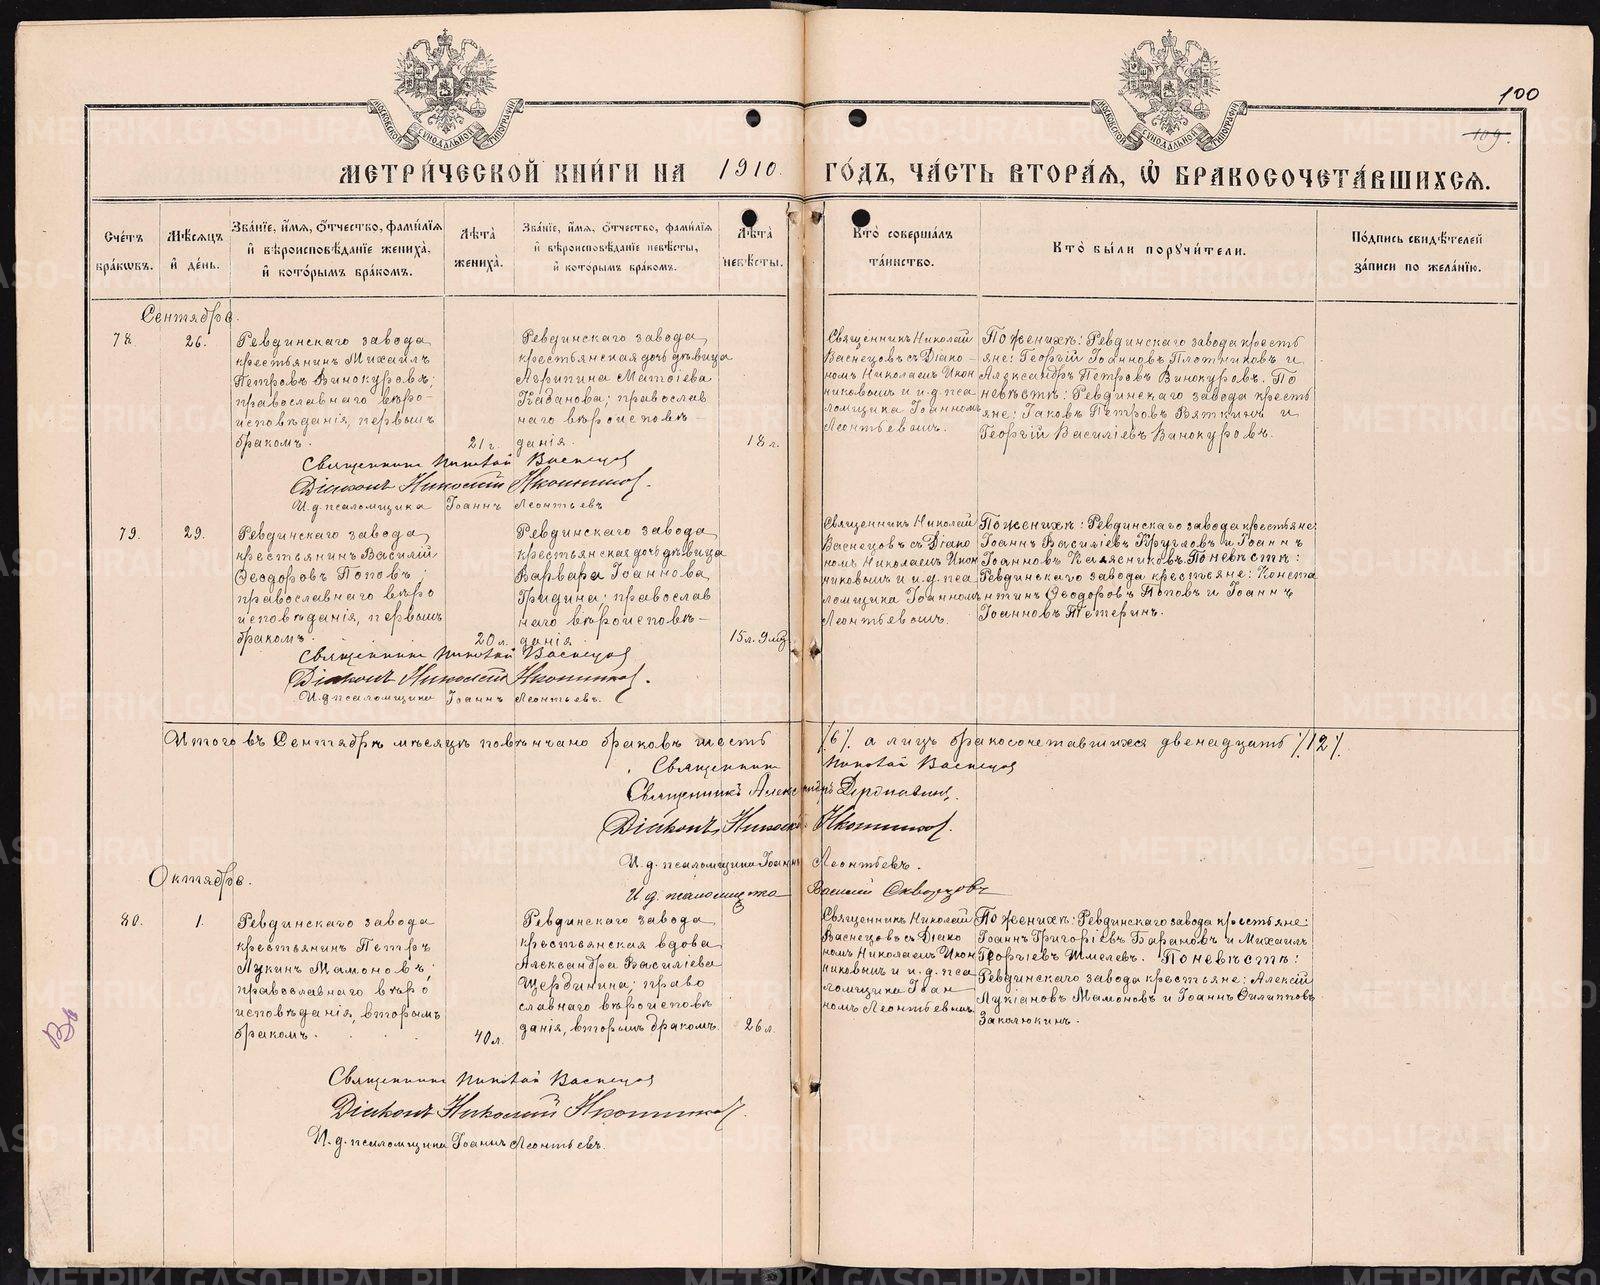 100
109.
МОСКОВСКОЙ СУНОДАЛЬНОЙ ТИПОГРАФІИ
МОСКОВСКОЙ СУНОДАЛЬНОЙ ТИПОГРАФІИ
МЕТРИ́ЧЕСКОЙ КНИ́ГИ НА 1910. ГО́ДЪ, ЧА́СТЬ ВТОРА́Я, Ѽ БРАКОСОЧЕТА́ВШИХСЯ.
Сче́тъ бра́кωвъ.
Мѣ́сяцъ и҆ де́нь.
Зва́нїе, и҆́мя, ѻ҆́тчество, фами́лїя
и҆ вѣроисповѣ́данїе жениха̀,
и҆ кото́рымъ бра́комъ.
Лѣ́та жениха̀.
Зва́нїе, и҆́мя, ѻ҆́тчество, фами́лїя
и҆ вѣроисповѣ́данїе невѣ́сты,
и҆ кото́рымъ бра́комъ.
Лѣ́та невѣ́сты.
Кто̀ соверша́лъ та́инство.
Кто̀ бы́ли поручи́тели.
По́дпись свидѣ́телей за́писи по жела́нїю.
Сентябрь.
78
26.
Ревдинскаго завода
крестьянинъ Михаилъ
Петровъ Винокуровъ;
православнаго вѣро-
исповѣданія, первымъ
бракомъ.
21 г.
Ревдинскаго завода
крестьянская дочь дѣвица
Агрипина Матѳіева
Каданова; православ
наго вѣроисповѣ-
данія.
18 л.
Священникъ Николай
Васнецовъ съ Діако-
номъ Николаемъ Икон
никовымъ и и.д. пса
ломщика Іоанномъ
Леонтьевымъ.
По женихѣ: Ревдинскаго завода кресть
яне: Георгій Іоанновъ Плотниковъ и
Александръ Петровъ Винокуровъ. По
невѣстѣ: Ревдинскаго завода кресть
яне: Іаковъ Петровъ Вяткинъ и
Георгій Василіевъ Винокуровъ.
Священникъ Николай Васнецовъ
Діаконъ Николай Иконниковъ.
И.д. псаломщика Іоаннъ Леонтьевъ
79.
29.
Ревдинскаго завода
крестьянинъ Василій
Ѳеодоровъ Поповъ;
православнаго вѣро
исповѣданія, первымъ
бракомъ.
20 л.
Ревдинскаго завода
крестьянская дочь дѣвица
Варвара Іоаннова
Гридина; православ
наго вѣроисповѣ-
данія.
15 л. 9 мѣс.
Священникъ Николай
Васнецовъ съ Діако
номъ Николаемъ Икон
никовымъ и и.д. пса
ломщика Іоанномъ
Леонтьевымъ.
По женихѣ: Ревдинскаго завода крестьяне:
Іоаннъ Василіевъ Кругловъ и Іоаннъ
Іоанновъ Калясниковъ. По невѣстѣ:
Ревдинскаго завода крестьяне: Конста
нтинъ Ѳеодоровъ Поповъ и Іоаннъ
Іоанновъ Петеринъ.
Священникъ Николай Васнецовъ
Діаконъ Николай Иконниковъ.
И.д. псаломщика Іоаннъ Леонтьевъ.
Итого въ Сентябрѣ мѣсяцѣ повѣнчано браковъ шесть /6/. а лицъ бракосочетавшихся двенадцать /12/.
Священникъ Николай Васнецовъ
Священникъ Александръ
Діаконъ Николай Иконниковъ.
И.д. псаломщика Іоаннъ Леонтьевъ.
И.д. псаломщика Василій Скворцовъ
Октябрь.
80.
1.
Ревдинскаго завода
крестьянинъ Петръ
Лукинъ Мамоновъ;
православнаго вѣро
исповѣданія, вторымъ
бракомъ.
40 л.
Ревдинскаго завода
крестьянская вдова
Александра Василіева
Щердинина; право
славнаго вѣроисповѣ
данія, вторымъ бракомъ.
26 л.
Священникъ Николай
Васнецовъ съ Діако
номъ Николаемъ Икон
никовымъ и и.д. пса
ломщика Іоан
номъ Леонтьевымъ.
По женихѣ: Ревдинскаго завода крестьяне:
Іоаннъ Григоріевъ Барановъ и Михаилъ
Георгіевъ Шмелевъ. По невѣстѣ:
Ревдинскаго завода крестьяне: Алексій
Лукіановъ Мамоновъ и Іоаннъ Филипповъ
Заколюкинъ.
Священникъ Николай Васнецовъ
Діаконъ Николай Иконниковъ.
И.д. псаломщика Іоаннъ Леонтьевъ.
METRIKI.GASO-URAL.RU